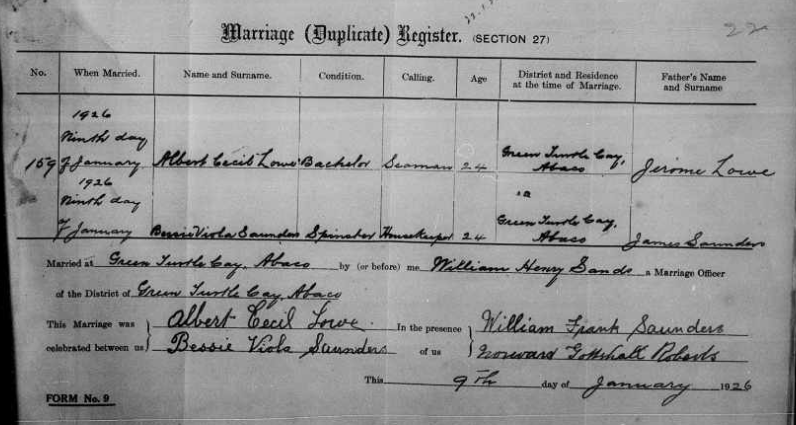 22
Marriage (Duplicate) Register. (SECTION 27)
No. When Married. Name and Surname. Condition. Calling. Age District and Residence at the time of Marriage. Father's Name and Surname
1926
Ninth day
159 of January Albert Cecil Lowe Bachelor Seaman 24 Green Turtle Cay, Abaco Jerome Lowe
1926
Ninth day
of January Bessie Viola Saunders Spinster Housekeeper 24 Green Turtle Cay, Abaco James Saunders
Married at Green Turtle Cay, Abaco by (or before) me William Henry Sands a Marriage Officer
of the District of Green Turtle Cay, Abaco
This Marriage was Albert Cecil Lowe. In the presence William Frank Saunders
celebrated between us Bessie Viola Saunders of us Roberts
This 9th day of January 1926
FORM No. 9